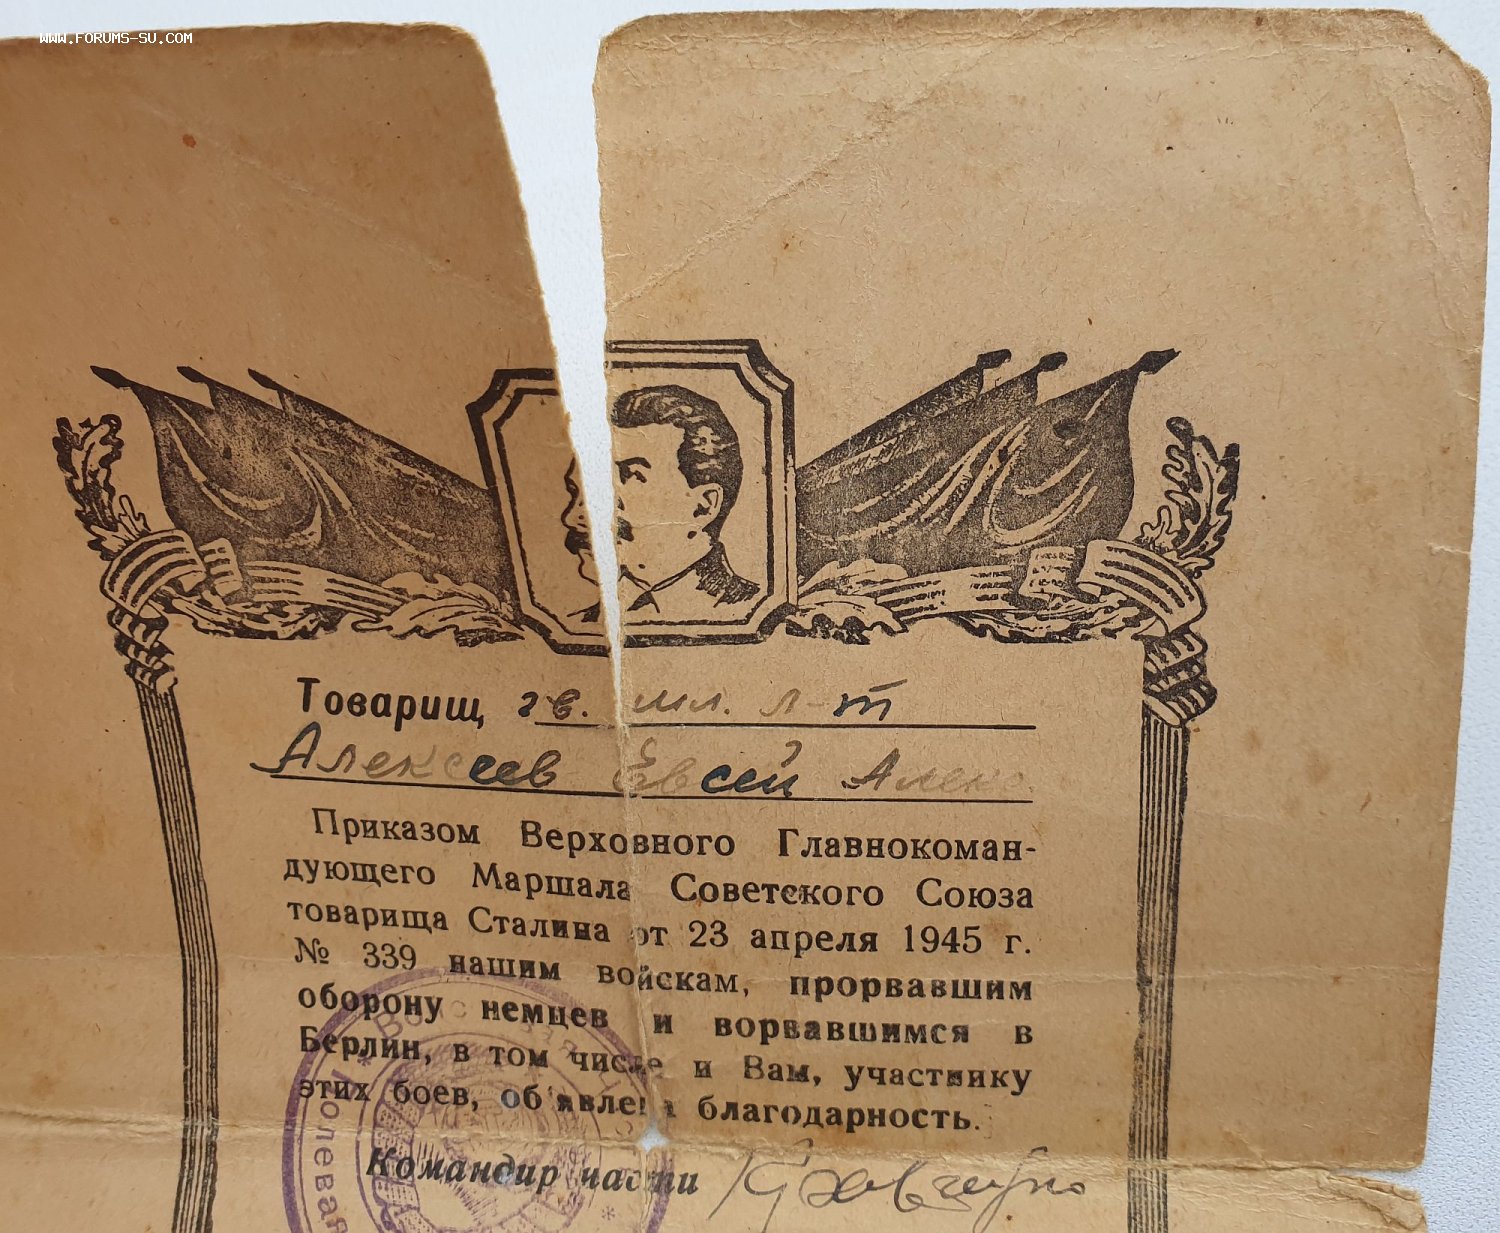 WWW.FORUMS-SU.COM
Товарищ гв. мл. л-т
Алексеев Евсей Алекс
Приказом Верховного Главнокоман-
дующего Маршала Советского Союза
товарища Сталина от 23 апреля 1945 г.
№ 339 нашим войскам, прорвавшим
оборону немцев и ворвавшимся в
Берлин, в том числе и Вам, участнику
этих боев, об'явлена благодарность.
Командир части
Полевая